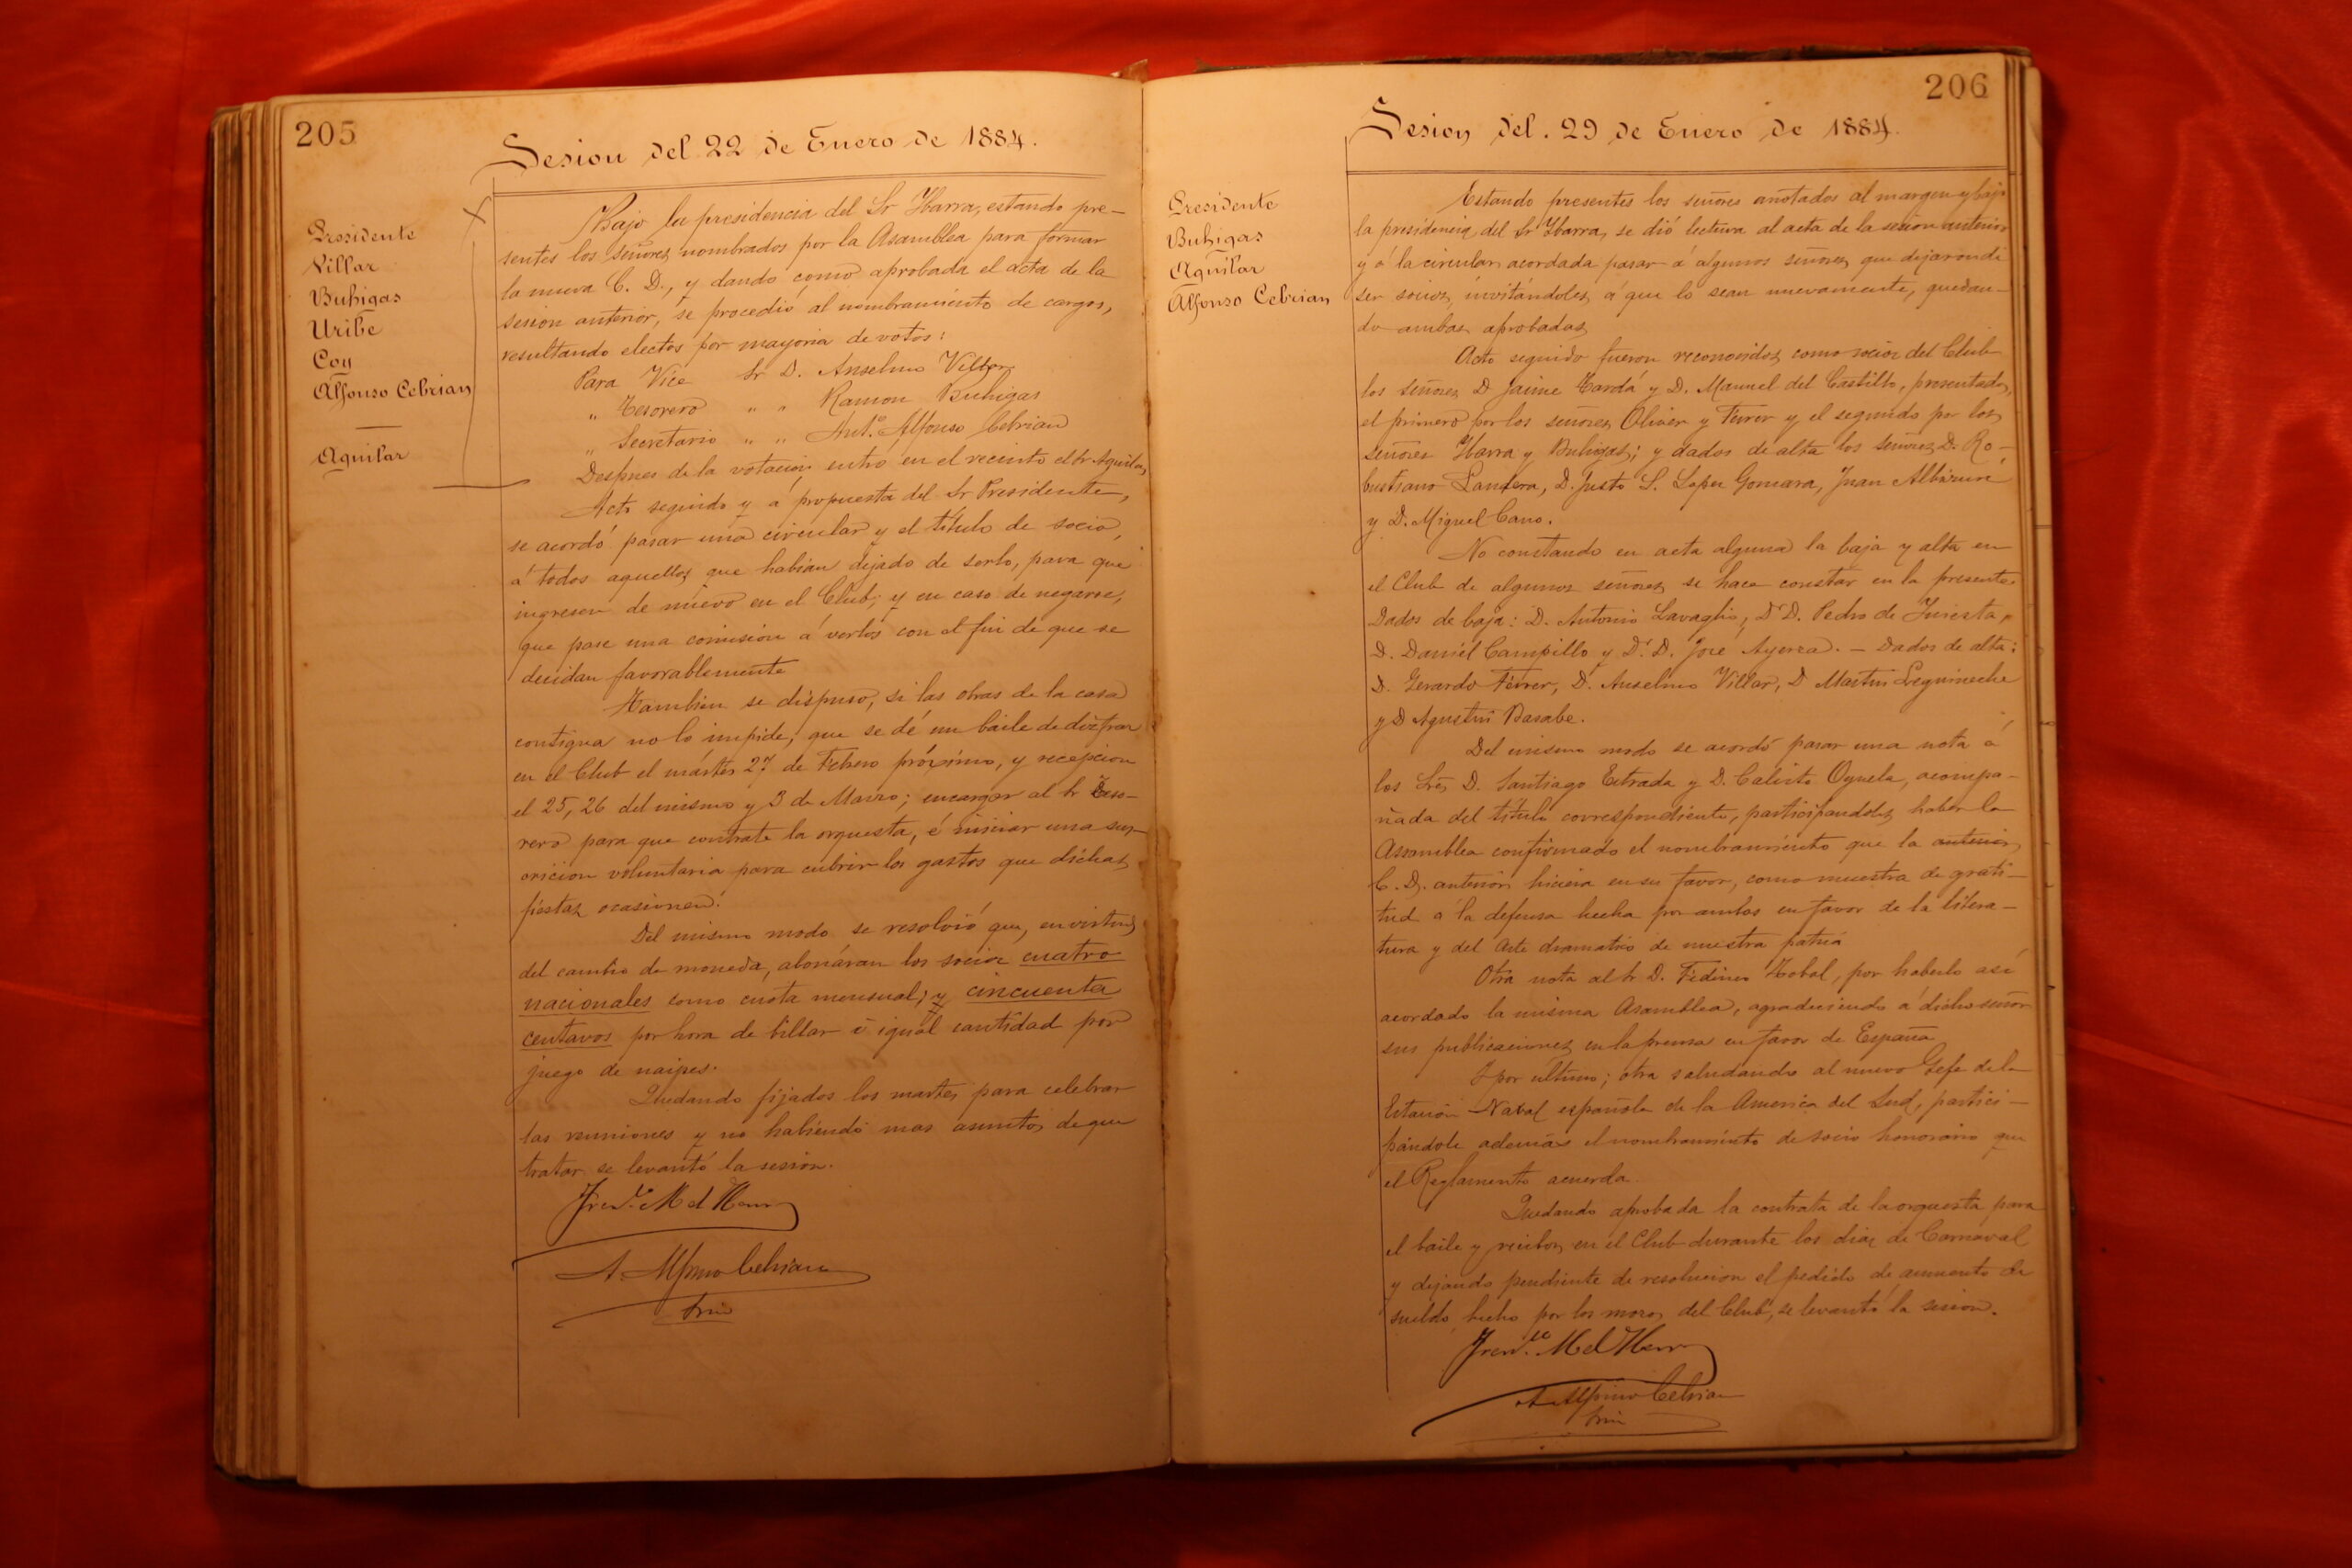 205
Sesion del 22 de Enero de 1884.
Presidente
Villar
Buhigas
Uribe
Coy
Alfonso Cebrian
Aguilar
Bajo la presidencia del Sr Ybarra, estando pre-
sentes los señores nombrados por la Asamblea para formar
la nueva C. D., y dando como aprobada el acta de la
sesion anterior, se procedió al nombramiento de cargos,
resultando electos por mayoria de votos:
Para Vice Sr D. Anselmo Villar
„ Tesorero „ „ Ramon Buhigas
„ Secretario „ „ Ant.º Alfonso Cebrian
Despues de la votacion entró en el recinto el Sr Aguilar,
Acto seguido y á propuesta del Sr Presidente,
se acordó pasar una circular y el título de socio,
á todos aquellos que habian dejado de serlo, para que
ingresen de nuevo en el Club; y en caso de negarse,
que pase una comision á verlos con el fin de que se
decidan favorablemente
Tambien se dispuso, si las obras de la casa
contigua no lo impide, que se dé un baile de dizfraz
en el Club el mártes 27 de Febrero próximo, y recepcion
el 25, 26 del mismo y 3 de Marzo; encargar al Sr Teso-
rero para que contrate la orquesta, é iniciar una sus-
cricion voluntaria para cubrir los gastos que dichas
fiestas ocasionen.
Del mismo modo se resolvió que, en virtud
del cambio de moneda, abonáran los socios cuatro
nacionales como cuota mensual; y cincuenta
centavos por hora de billar é igual cantidad por
juego de naipes.
Quedando fijados los martes para celebrar
las reuniones y no habiendo mas asuntos de que
tratar se levantó la sesion.
A. Alfonso Cebrian
Srio
206
Sesion del. 29 de Enero de 1884.
Presidente
Buhigas
Aguilar
Alfonso Cebrian
Estando presentes los señores anotados al margen y bajo
la presidencia del Sr Ybarra, se dió lectura al acta de la sesion anterior
y á la circular acordada pasar á algunos señores que dejaron de
ser socios, invitándoles á que lo sean nuevamente, quedan-
do ambas aprobadas
Acto seguido fueron reconocidos como socios del Club
los señores D Jaime Tardá y D. Manuel del Castillo, presentados,
el primero por los señores Oliver y Ferrer y el segundo por los
señores Ybarra y Buhigas; y dados de alta los señores D. Ro-
bustiano Landera, D. Justo S. Lopez Gomara, Juan
y D. Miguel Cano.
No constando en acta alguna la baja y alta en
el Club de algunos señores se hace constar en la presente
Dados de baja: D. Antonio Lavaglio, Dr D. Pedro de Yuresta,
D. Daniel Campillo y Dr. D. José Ayerza. — Dados de alta:
D. Gerardo Ferrer, D. Anselmo Villar, D Martin Leguineche
y D Agustin Basabe.
Del mismo modo se acordó pasar una nota á
los Sres D. Santiago Estrada y D. Calisto Oyuela, acompa-
ñada del título correspondiente, participandoles haber la
Assamblea confirmado el nombramiento que la anterior
C. D. anterior hiciera en su favor, como muestra de grati-
tud a la defensa hecha por ambos en favor de la litera-
tura y del arte dramatico de nuestra patria
Otra nota al Sr D. por haberlo asi
acordado la misma Asamblea, agradeciendo á dicho señor
sus publicaciones en la prensa en favor de España
Y por último; otra saludando al nuevo Gefe de la
Estacion Naval española de la America del Sud, partici-
pándole además el nombramiento de socio honorario que
el Reglamento acuerda.
Quedando aprobada la contrata de la orquesta para
el baile y recibos en el Club durante los dias de Carnaval
y dejando pendiente de resolucion el pedido de aumento de
sueldo hecho por los mozos del Club, se levantó la sesion.
A Alfonso Cebrian
Srio